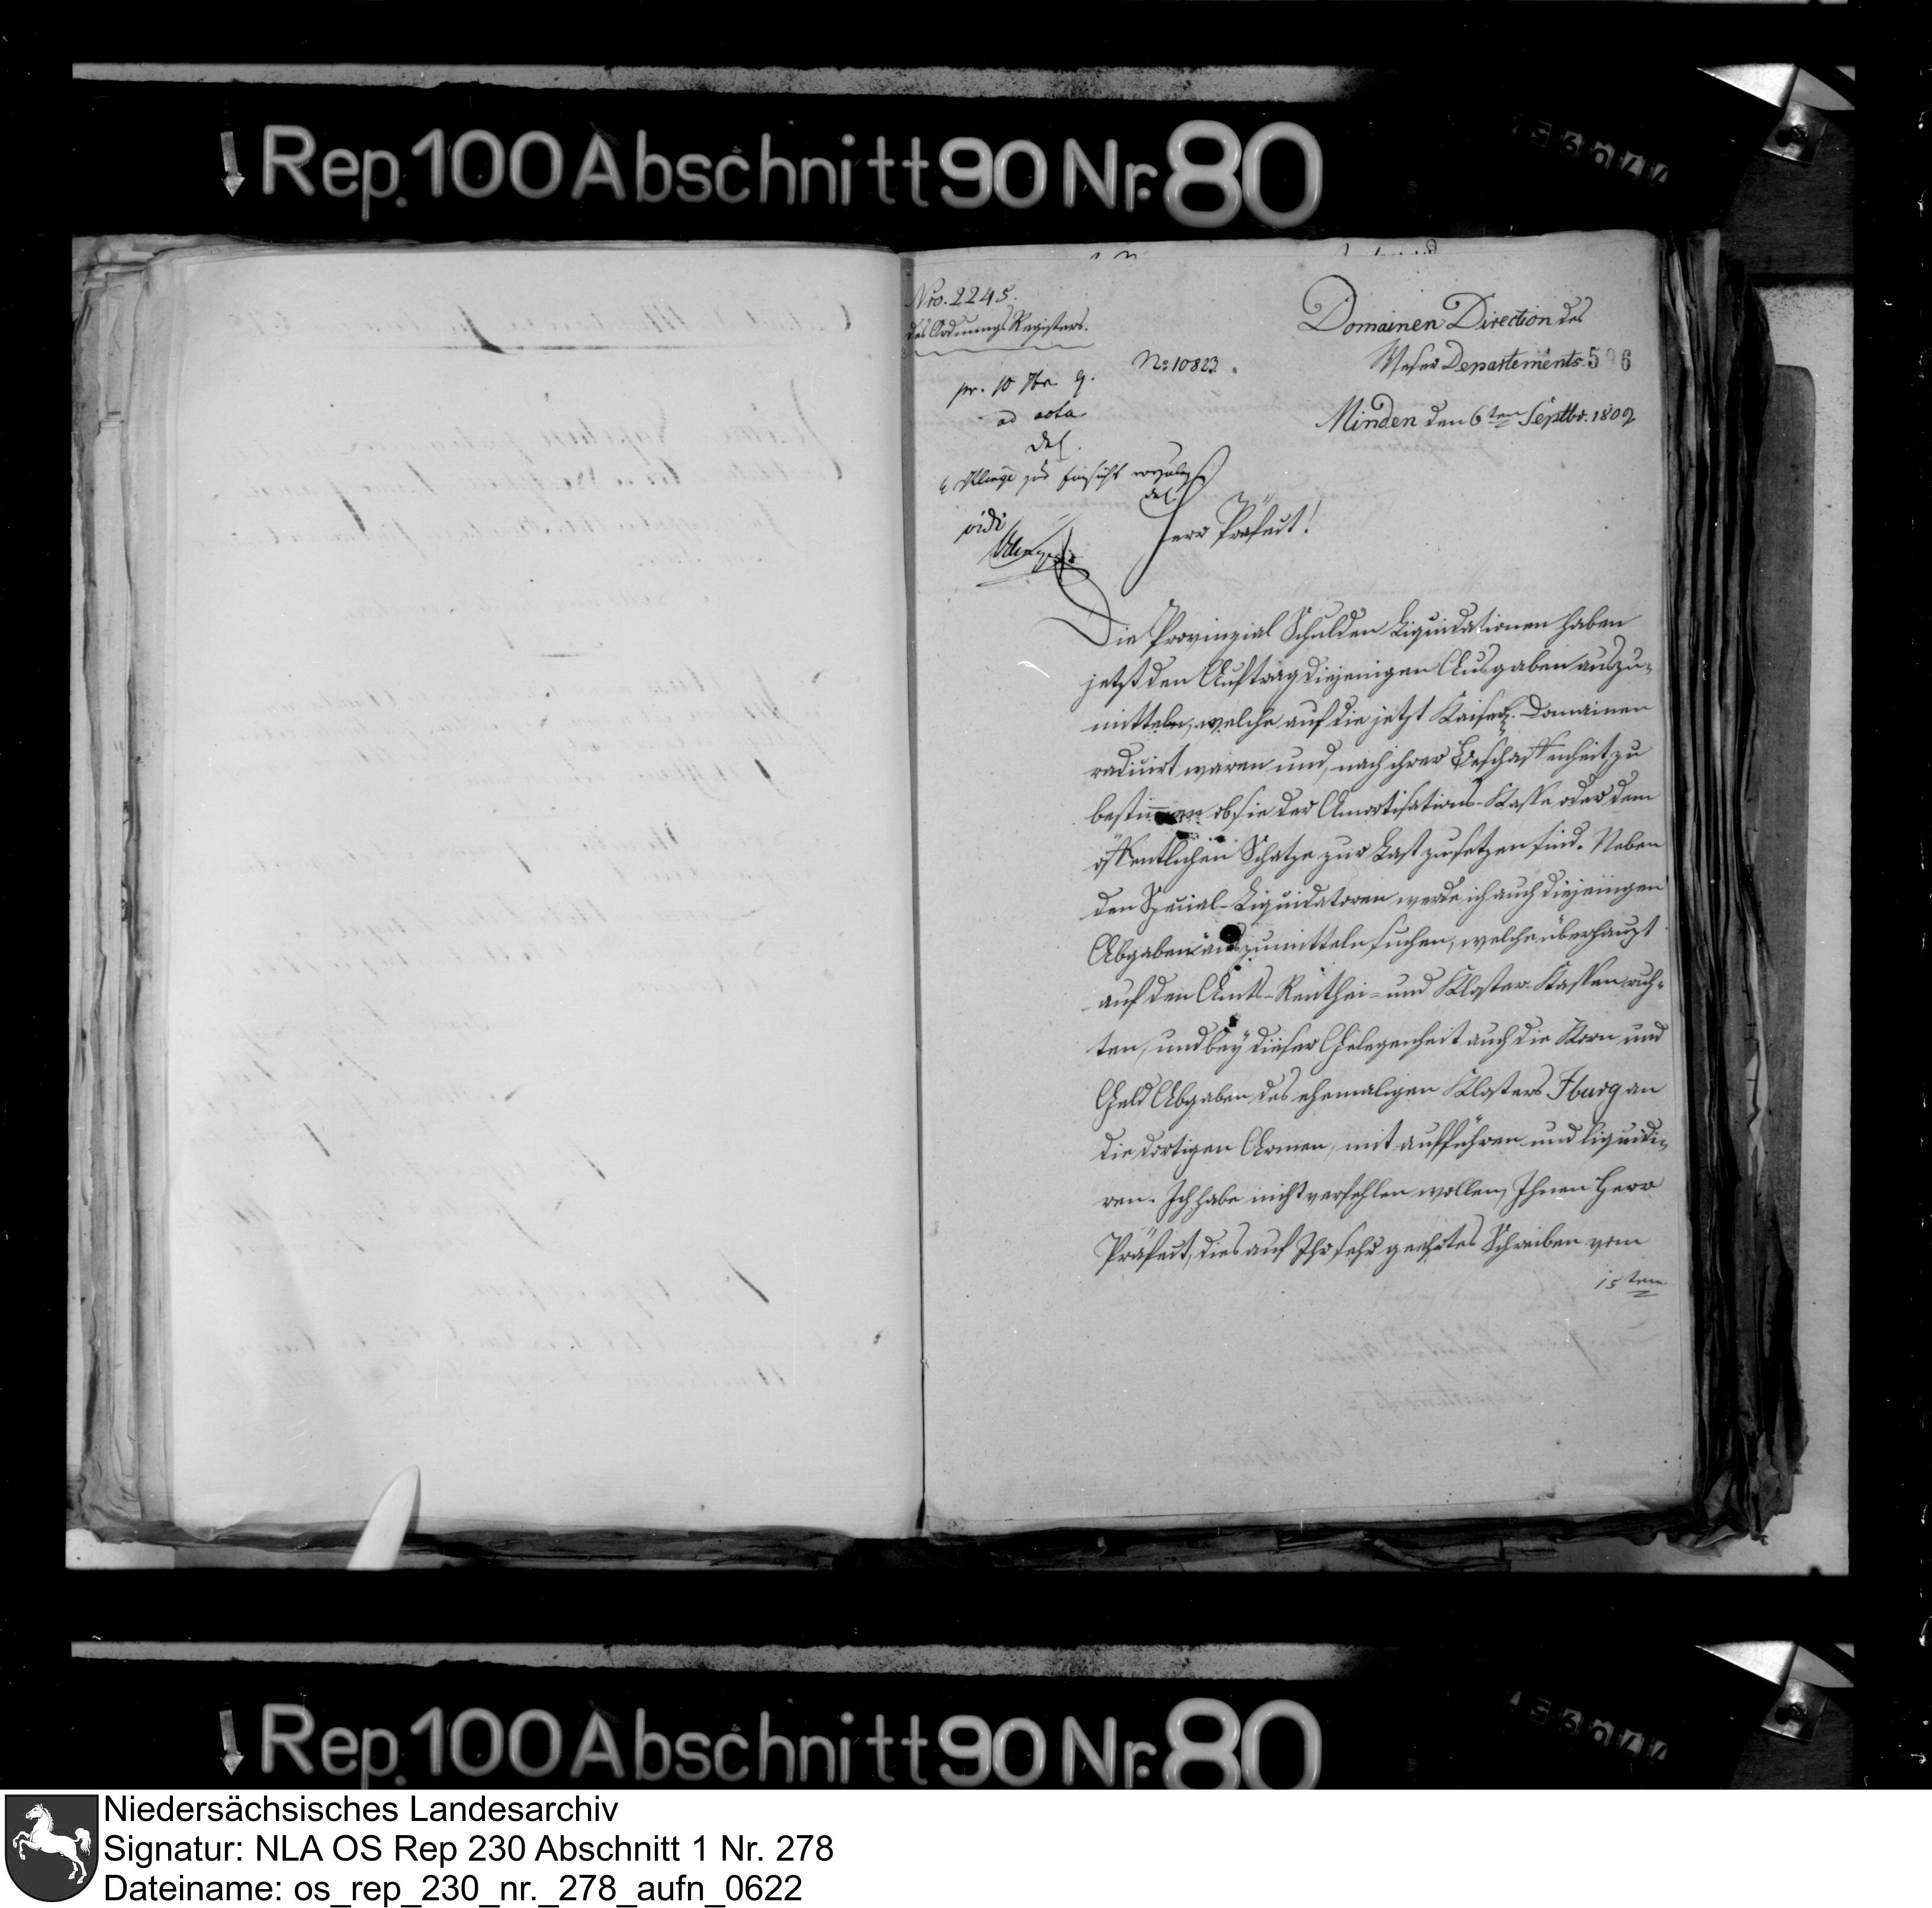 Rep. 100 Abschnitt 90 Nr. 80
Nro. 2245.
des Ordnungs Registers.
No 10823.
Domainen Direction des
Weser Departements.
596
Minden den 6ten Septbr. 1809
pr. 10 7br 9.
ad acta
zur Einsicht vorzulegen
vidi
Herr Präfect!
Die Provinzial Schulden Liquidationen haben
jetzt den Auftrag diejenigen Ausgaben auszu-
mitteln, welche auf die jetzt Kaiserl. Domainen
radicirt waren und, nach ihrer Beschaffenheit zu
bestimmen ob sie der Amortisations-Kasse oder dem
öffentlichen Schatze zur Last zu setzen sind. Neben
den Special-Liquidatoren werde ich auch diejenigen
Abgaben auszumitteln suchen, welche überhaupt
auf den Amts-Renthei- und Kloster-Kassen ruh-
ten, und bey dieser Gelegenheit auch die Korn und
Geld Abgaben des ehemaligen Klosters Iburg an
die dortigen Armen, mit aufführen und liquidi-
ren. Ich habe nicht verfehlen wollen, Ihnen Herr
Präfect, dies auf Ihr sehr geehrtes Schreiben vom
15ten
Rep. 100 Abschnitt 90 Nr. 80
Niedersächsisches Landesarchiv
Signatur: NLA OS Rep 230 Abschnitt 1 Nr. 278
Dateiname: os_rep_230_nr._278_aufn_0622